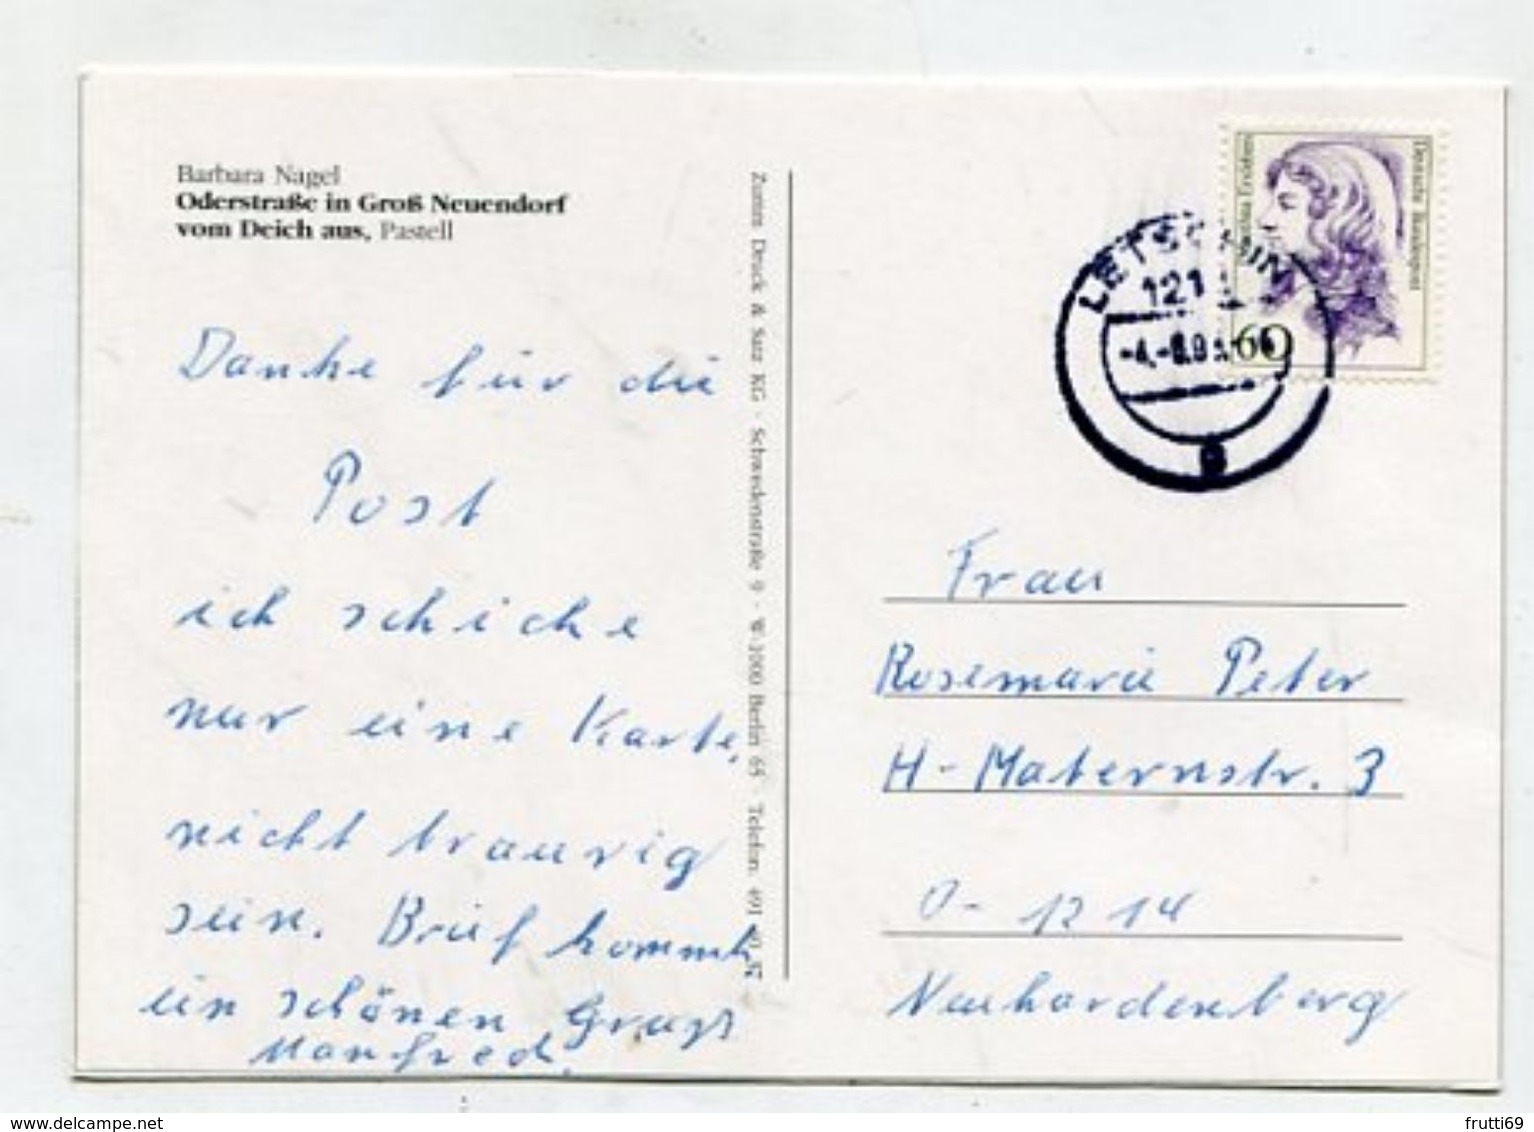 Barbara Nagel
Oderstraße in Groß Neuendorf
vom Deich aus, Pastell
Danke für die
Post
ich schicke
nur eine Karte,
nicht traurig
sein. Brief kommt
ein schönen Gruss
Manfred.
Zumm Druck & Satz KG · Schwedenstraße 9 · W-1000 Berlin 65 · Telefon: 491
Deutsche Bundespost
60
LETSCHIN
121
-4.-6.9
a
Frau
Rosemarie Peter
H-Maternstr. 3
O-1214
Neuhardenberg
www.delcampe.net
frutti69